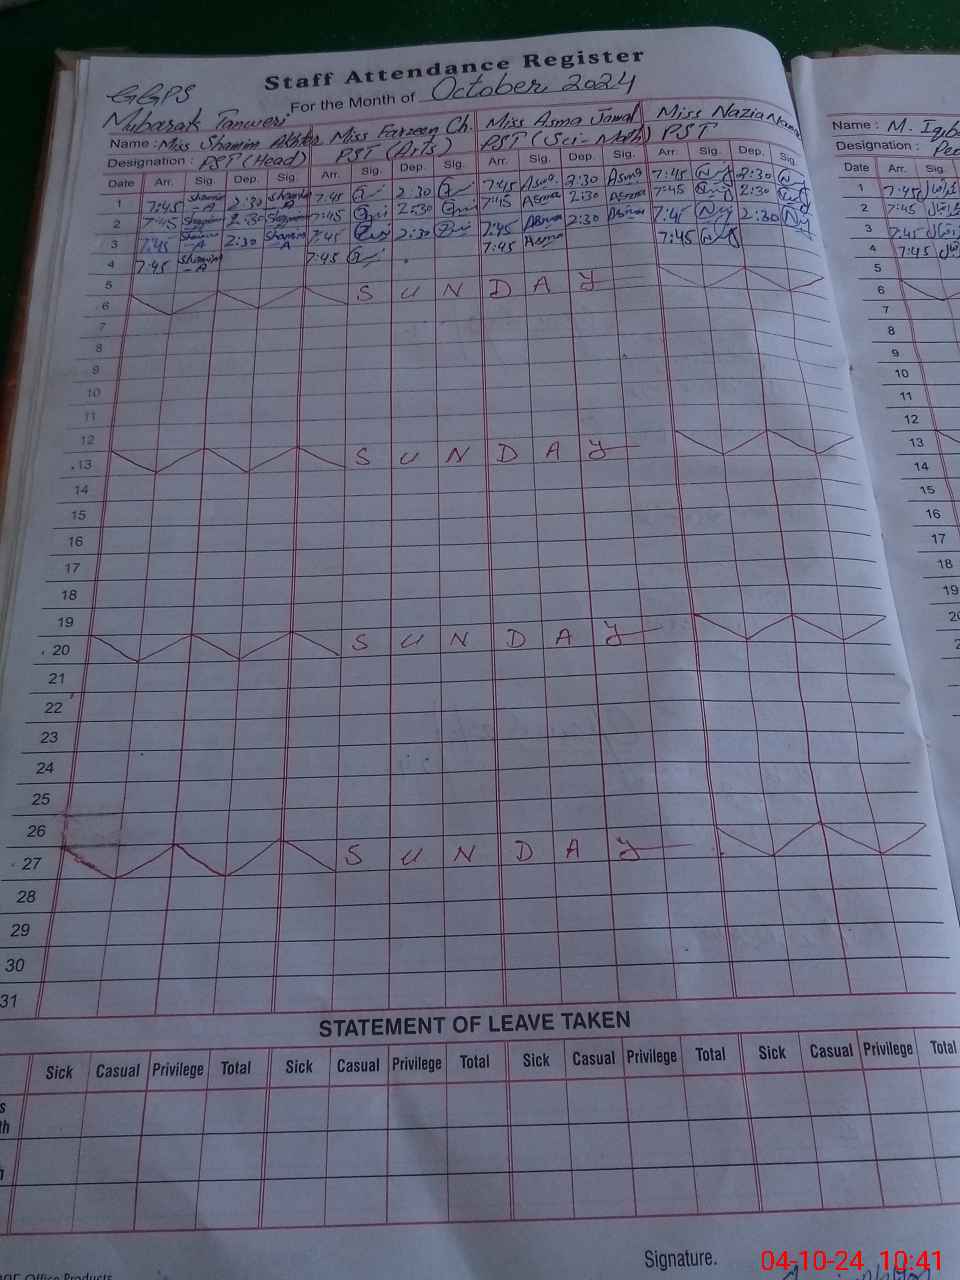 Staff Attendance Register
GGPS
For the Month of October 2024
Mubarak Tanweri
Name : Miss Shamim Akhter Miss Farzeen Ch. Miss Asma Jamal Miss Nazia
Designation : PST (Head) PST (Arts) PST (Sci-Math) PST
Date Arr. Sig. Dep. Sig. Arr. Sig. Dep. Sig. Arr. Sig. Dep. Sig. Arr. Sig. Dep. Sig.
1 7:45 Shamim - A 2:30 Shamim A 7:45 2:30 7:45 Asma 2:30 Asma 7:45 2:30
2 7:45 Shamim - A 2:30 Shamim A 7:45 2:30 7:45 Asma 2:30 Asma 7:45 2:30
3 7:45 Shamim - A 2:30 Shamim A 7:45 2:30 7:45 Asma 2:30 Asma 7:45 2:30
4 7:45 Shamim - A 7:45 7:45 Asma 7:45
5
6 S U N D A Y
7
8
9
10
11
12
13 S U N D A Y
14
15
16
17
18
19
20 S U N D A Y
21
22
23
24
25
26
27 S U N D A Y
28
29
30
31
STATEMENT OF LEAVE TAKEN
Sick Casual Privilege Total Sick Casual Privilege Total Sick Casual Privilege Total Sick Casual Privilege Total
Signature.
Office Products
Name : M. Iqba
Designation : Pe
Date Arr. Sig.
1 7:45
2 7:45
3 7:45
4 7:45
5
6
7
8
9
10
11
12
13
14
15
16
17
18
19
04-10-24 10:41